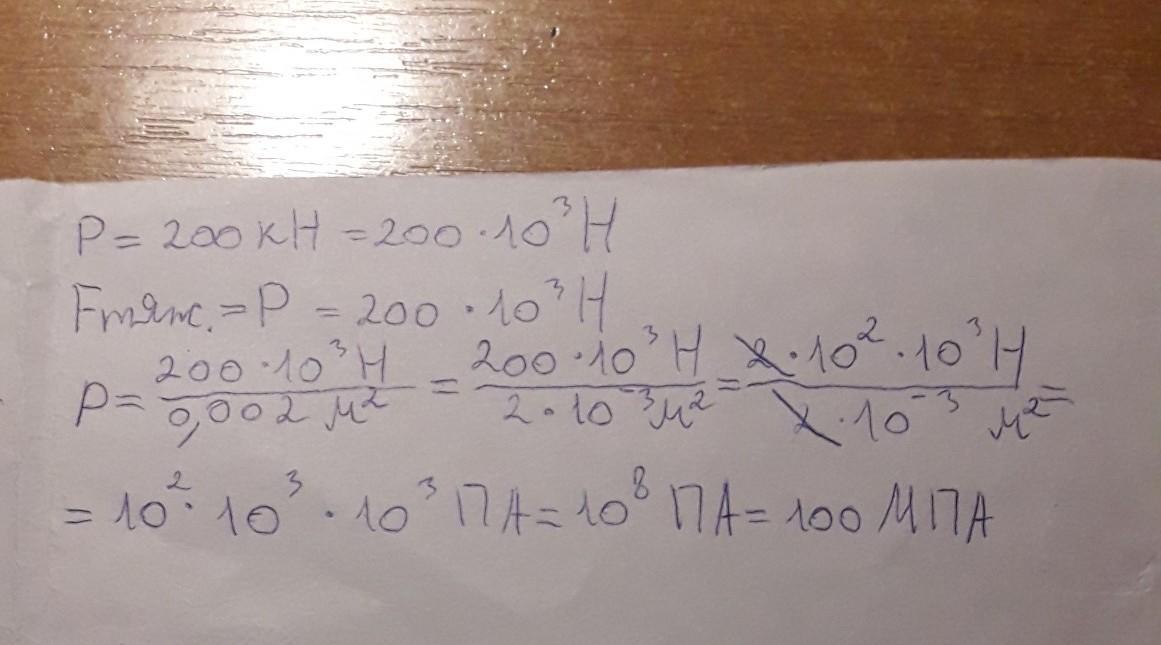 P = 200 кН = 200 · 10³ Н
Fтяж. = P = 200 · 10³ Н
p = 200 · 10³ Н / 0,002 м² = 200 · 10³ Н / 2 · 10⁻³ м² = 2 · 10² · 10³ Н / 2 · 10⁻³ м² =
= 10² · 10³ · 10³ ПА = 10⁸ ПА = 100 МПА